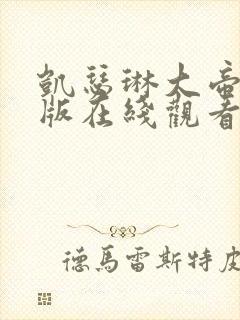 凱瑟琳大帝
版在綫觀看
德馬雷斯特皮